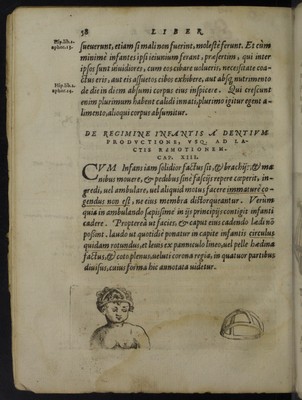 58 LIBER
Hip. lib. 1.
aphor. 13.
sueverunt, etiam si mali non fuerint, molestè ferunt. Et cùm
minimè infantes ipsi ieiunium ferant, præsertim, qui inter
ipsos sunt iuuidiores, cum eos cibare volueris, necessitate coa-
ctus eris, aut eis assuetos cibos exhibere, aut absq; nutrimento
Hip. lib. 1.
aphor. 14.
de die in diem absumi corpus eius inspicere. Qui crescunt
enim plurimum habent calidi innati, plurimo igitur egent a-
limento, alioqui corpus absumitur.
DE REGIMINE INFANTIS A DENTIVM
PRODVCTIONE, VSQ; AD LA-
CTIS REMOTIONEM.
CAP. XIII.
CVM Infans iam solidior factus sit, & brachijs & ma
nibus mouere, & pedibus sine fascijs repere cœperit, in-
gredi, vel ambulare, vel aliquid motus facere immaturè co-
gendus non est, ne eius membra distorqueantur. Verùm
quia in ambulando sæpissimè in ijs principijs contigit infanti
cadere. Proptereà ut facies, & caput eius cadendo lædi nõ
possint, laudo ut quotidiè ponatur in capite infantis circulus
quidam rotundus, et leuis ex panniculo lineo, vel pelle hædina
factus, & coto plenus, veluti corona regia, in quatuor partibus
diuisus, cuius forma hîc annotata videtur.